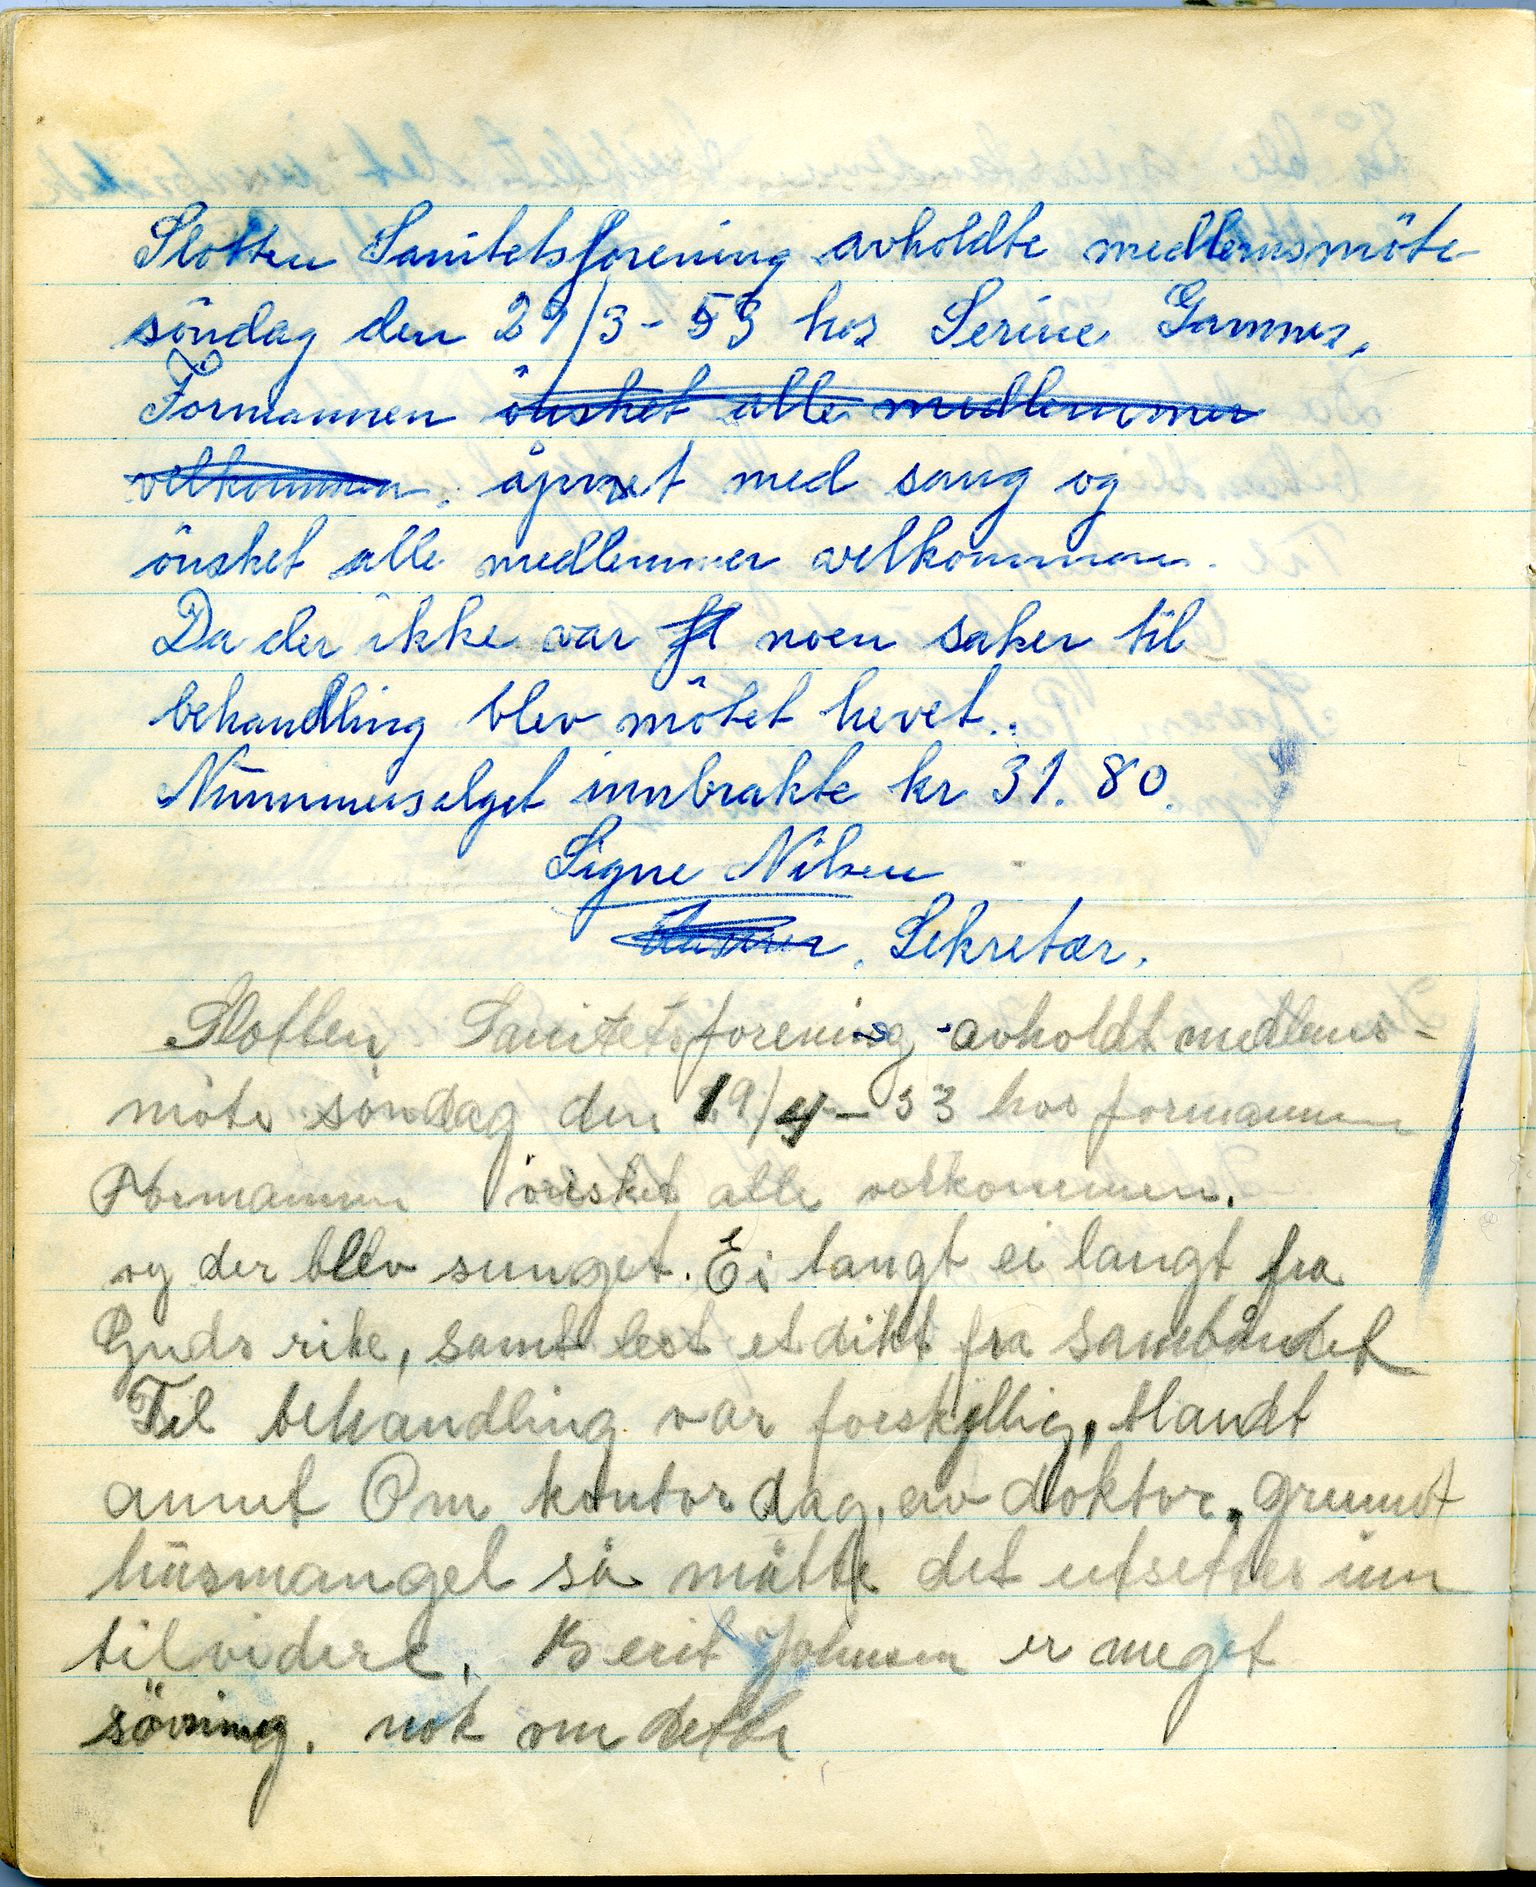 Slotten Sanitetsforening avholdte medlemsmöte
söndag den 29/3-53 hos Serine
Formannen önsket alle medlemmer
velkommen. åpnet med sang og
önsket alle medlemmer velkommen.
Da der ikke var noen saker til
behandling blev mötet hevet.
Nummersalget innbrakte kr 31.80.
Signe Nilsen
Sekretær.
Slotten Sanitetsforening avholdt medlems-
möte söndag den 19/4-53 hos formannen
Formannen önsket alle velkommen.
og der blev sunget. Ei langt ei langt fra
Guds rike, samt lest et dikt fra sambåndet
Til behandling var forskjellig, blandt
annet Om kontordag, av doktor, grundt
husmangel så måtte det utsettes inn
til videre. Berit Johnsen er meget
nok om dette